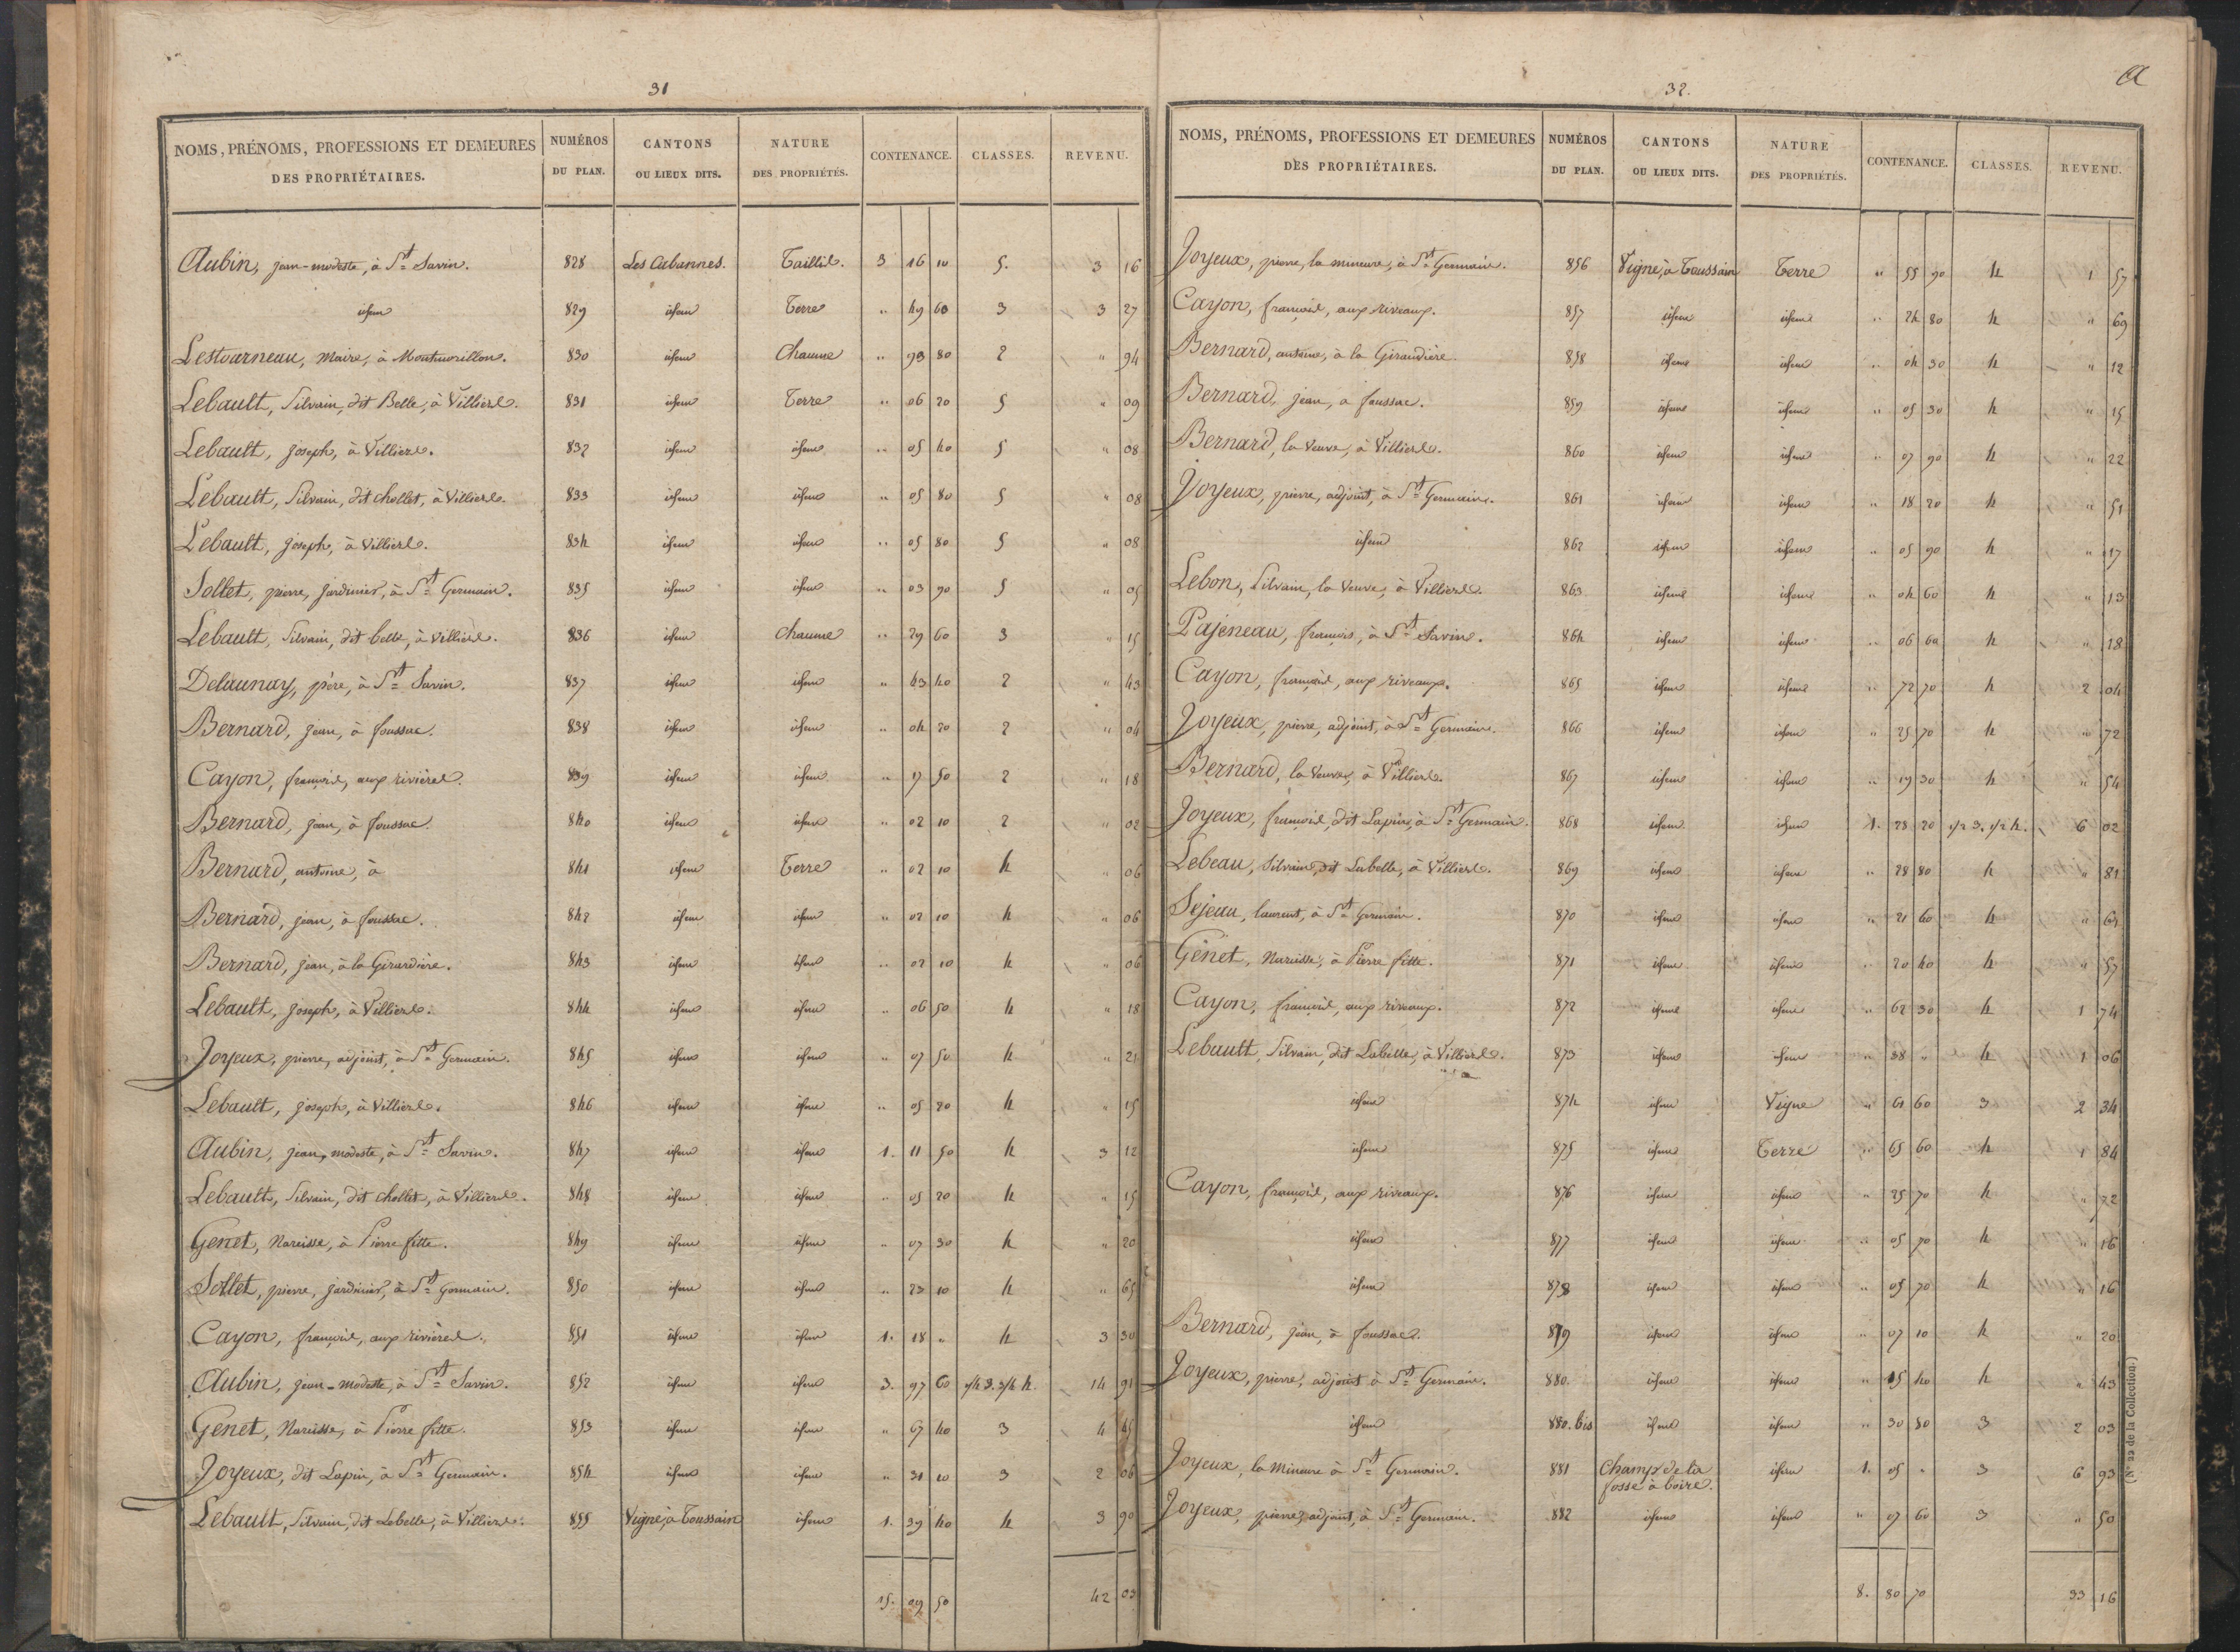 31
NOMS, PRÉNOMS, PROFESSIONS ET DEMEURES DES PROPRIÉTAIRES. NUMÉROS DU PLAN. CANTONS OU LIEUX DITS. NATURE DES PROPRIÉTÉS. CONTENANCE. CLASSES. REVENU.
Aubin, jean-modeste, à St Savin. 828 Les Cabannes. Taillis. 3 16 10 5. 3 16
idem 829 idem Terre " 49 60 3 3 27
Lestourneau, Maire, à Montmorillon. 830 idem Chaume " 93 80 2 " 94
Lebault, Silvain, dit Belle, à Villiers. 831 idem Terre " 06 20 5 " 09
Lebault, joseph, à Villiers. 832 idem idem " 05 40 5 " 08
Lebault, Silvain, dit chollet, à Villiers. 833 idem idem " 05 80 5 " 08
Lebault, joseph, à Villiers. 834 idem idem " 05 80 5 " 08
Sollet, pierre, jardinier, à St Germain. 835 idem idem " 03 90 5 " 05
Lebault, Silvain, dit belle, à Villiers. 836 idem Chaume " 29 60 3 " 15
Delaunay, père, à St Savin. 837 idem idem " 43 40 2 " 43
Bernard, jean, à foussac. 838 idem idem " 04 20 2 " 04
Cayon, françois, aux rivières. 839 idem idem " 17 50 2 " 18
Bernard, jean, à foussac. 840 idem idem " 02 10 2 " 02
Bernard, antoine, à 841 idem Terre " 02 10 4 " 06
Bernard, jean, à foussac. 842 idem idem " 02 10 4 " 06
Bernard, jean, à la Girardière. 843 idem idem " 02 10 4 " 06
Lebault, joseph, à Villiers. 844 idem idem " 06 50 4 " 18
Joyeux, pierre, adjoint, à St Germain. 845 idem idem " 07 50 4 " 21
Lebault, joseph, à Villiers. 846 idem idem " 05 20 4 " 15
Aubin, jean, modeste, à St Savin. 847 idem idem 1. 11 50 4 3 12
Lebault, Silvain, dit chollet, à Villiers. 848 idem idem " 05 20 4 " 15
Genet, Narcisse, à Pierre fitte. 849 idem idem " 07 30 4 " 20
Sollet, pierre, jardinier, à St Germain. 850 idem idem " 23 10 4 " 65
Cayon, françois, aux rivières. 851 idem idem 1. 18 " 4 3 30
Aubin, jean-modeste, à St Savin. 852 idem idem 3. 97 60 1/4 3. 3/4 4. 14 91
Genet, Narcisse, à Pierre fitte. 853 idem idem " 67 40 3 4 45
Joyeux, dit Lapin, à St Germain. 854 idem idem " 31 20 3 2 06
Lebault, Silvain, dit Labelle, à Villiers. 855 Vigne, à Toussain idem 1. 39 40 4 3 90
15. 09 50 42 03
32.
NOMS, PRÉNOMS, PROFESSIONS ET DEMEURES DES PROPRIÉTAIRES. NUMÉROS DU PLAN. CANTONS OU LIEUX DITS. NATURE DES PROPRIÉTÉS. CONTENANCE. CLASSES. REVENU.
Joyeux, pierre, la mineure, à St Germain. 856 Vigne, à Toussain Terre " 55 90 4 1 57
Cayon, françois, aux riveaux. 857 idem idem " 24 80 4 " 69
Bernard, antoine, à la Giraudière. 858 idem idem " 04 30 4 " 12
Bernard, jean, à foussac. 859 idem idem " 05 30 4 " 15
Bernard, la Veuve, à Villiers. 860 idem idem " 07 90 4 " 22
Joyeux, pierre, adjoint, à St Germain. 861 idem idem " 18 20 4 " 51
idem 862 idem idem " 05 90 4 " 17
Lebon, Silvain, la Veuve, à Villiers. 863 idem idem " 04 60 4 " 13
Pajeneau, françois, à St Savin. 864 idem idem " 06 60 4 " 18
Cayon, françois, aux riveaux. 865 idem idem " 72 70 4 2 04
Joyeux, pierre, adjoint, à St Germain. 866 idem idem " 25 70 4 " 72
Bernard, la Veuve, à Villiers. 867 idem idem " 19 30 4 " 54
Joyeux, françois, dit Lapin, à St Germain. 868 idem idem 1. 28 20 1/2 3. 1/2 4. 6 02
Lebeau, Silvain, dit Labelle, à Villiers. 869 idem idem " 28 80 4 " 81
Sejeau, laurent, à St Germain. 870 idem idem " 21 60 4 "
Genet, Narcisse, à Pierre fitte. 871 idem idem " 20 40 4 " 57
Cayon, françois, aux riveaux. 872 idem idem " 62 30 4 1 74
Lebault, Silvain, dit Labelle, à Villiers. 873 idem idem " 38 " 4 1 06
idem 874 idem Vigne " 61 60 3 2 34
idem 875 idem Terre " 65 60 4 1 84
Cayon, françois, aux riveaux. 876 idem idem " 25 70 4 " 72
idem 877 idem idem " 05 70 4 " 16
idem 878 idem idem " 05 70 4 " 16
Bernard, jean, à foussac. 879 idem idem " 07 10 4 " 20
Joyeux, pierre, adjoint à St Germain. 880. idem idem " 15 40 4 " 43
idem 880. bis idem idem " 30 80 3 2 03
Joyeux, la Mineure à St Germain. 881 Champ de la fosse à boire. idem 1. 05 " 3 6 93
Joyeux, pierre, adjoint, à St Germain. 882 idem idem " 07 60 3 " 50
8. 80 70 33 16
(N° 22 de la Collection.)